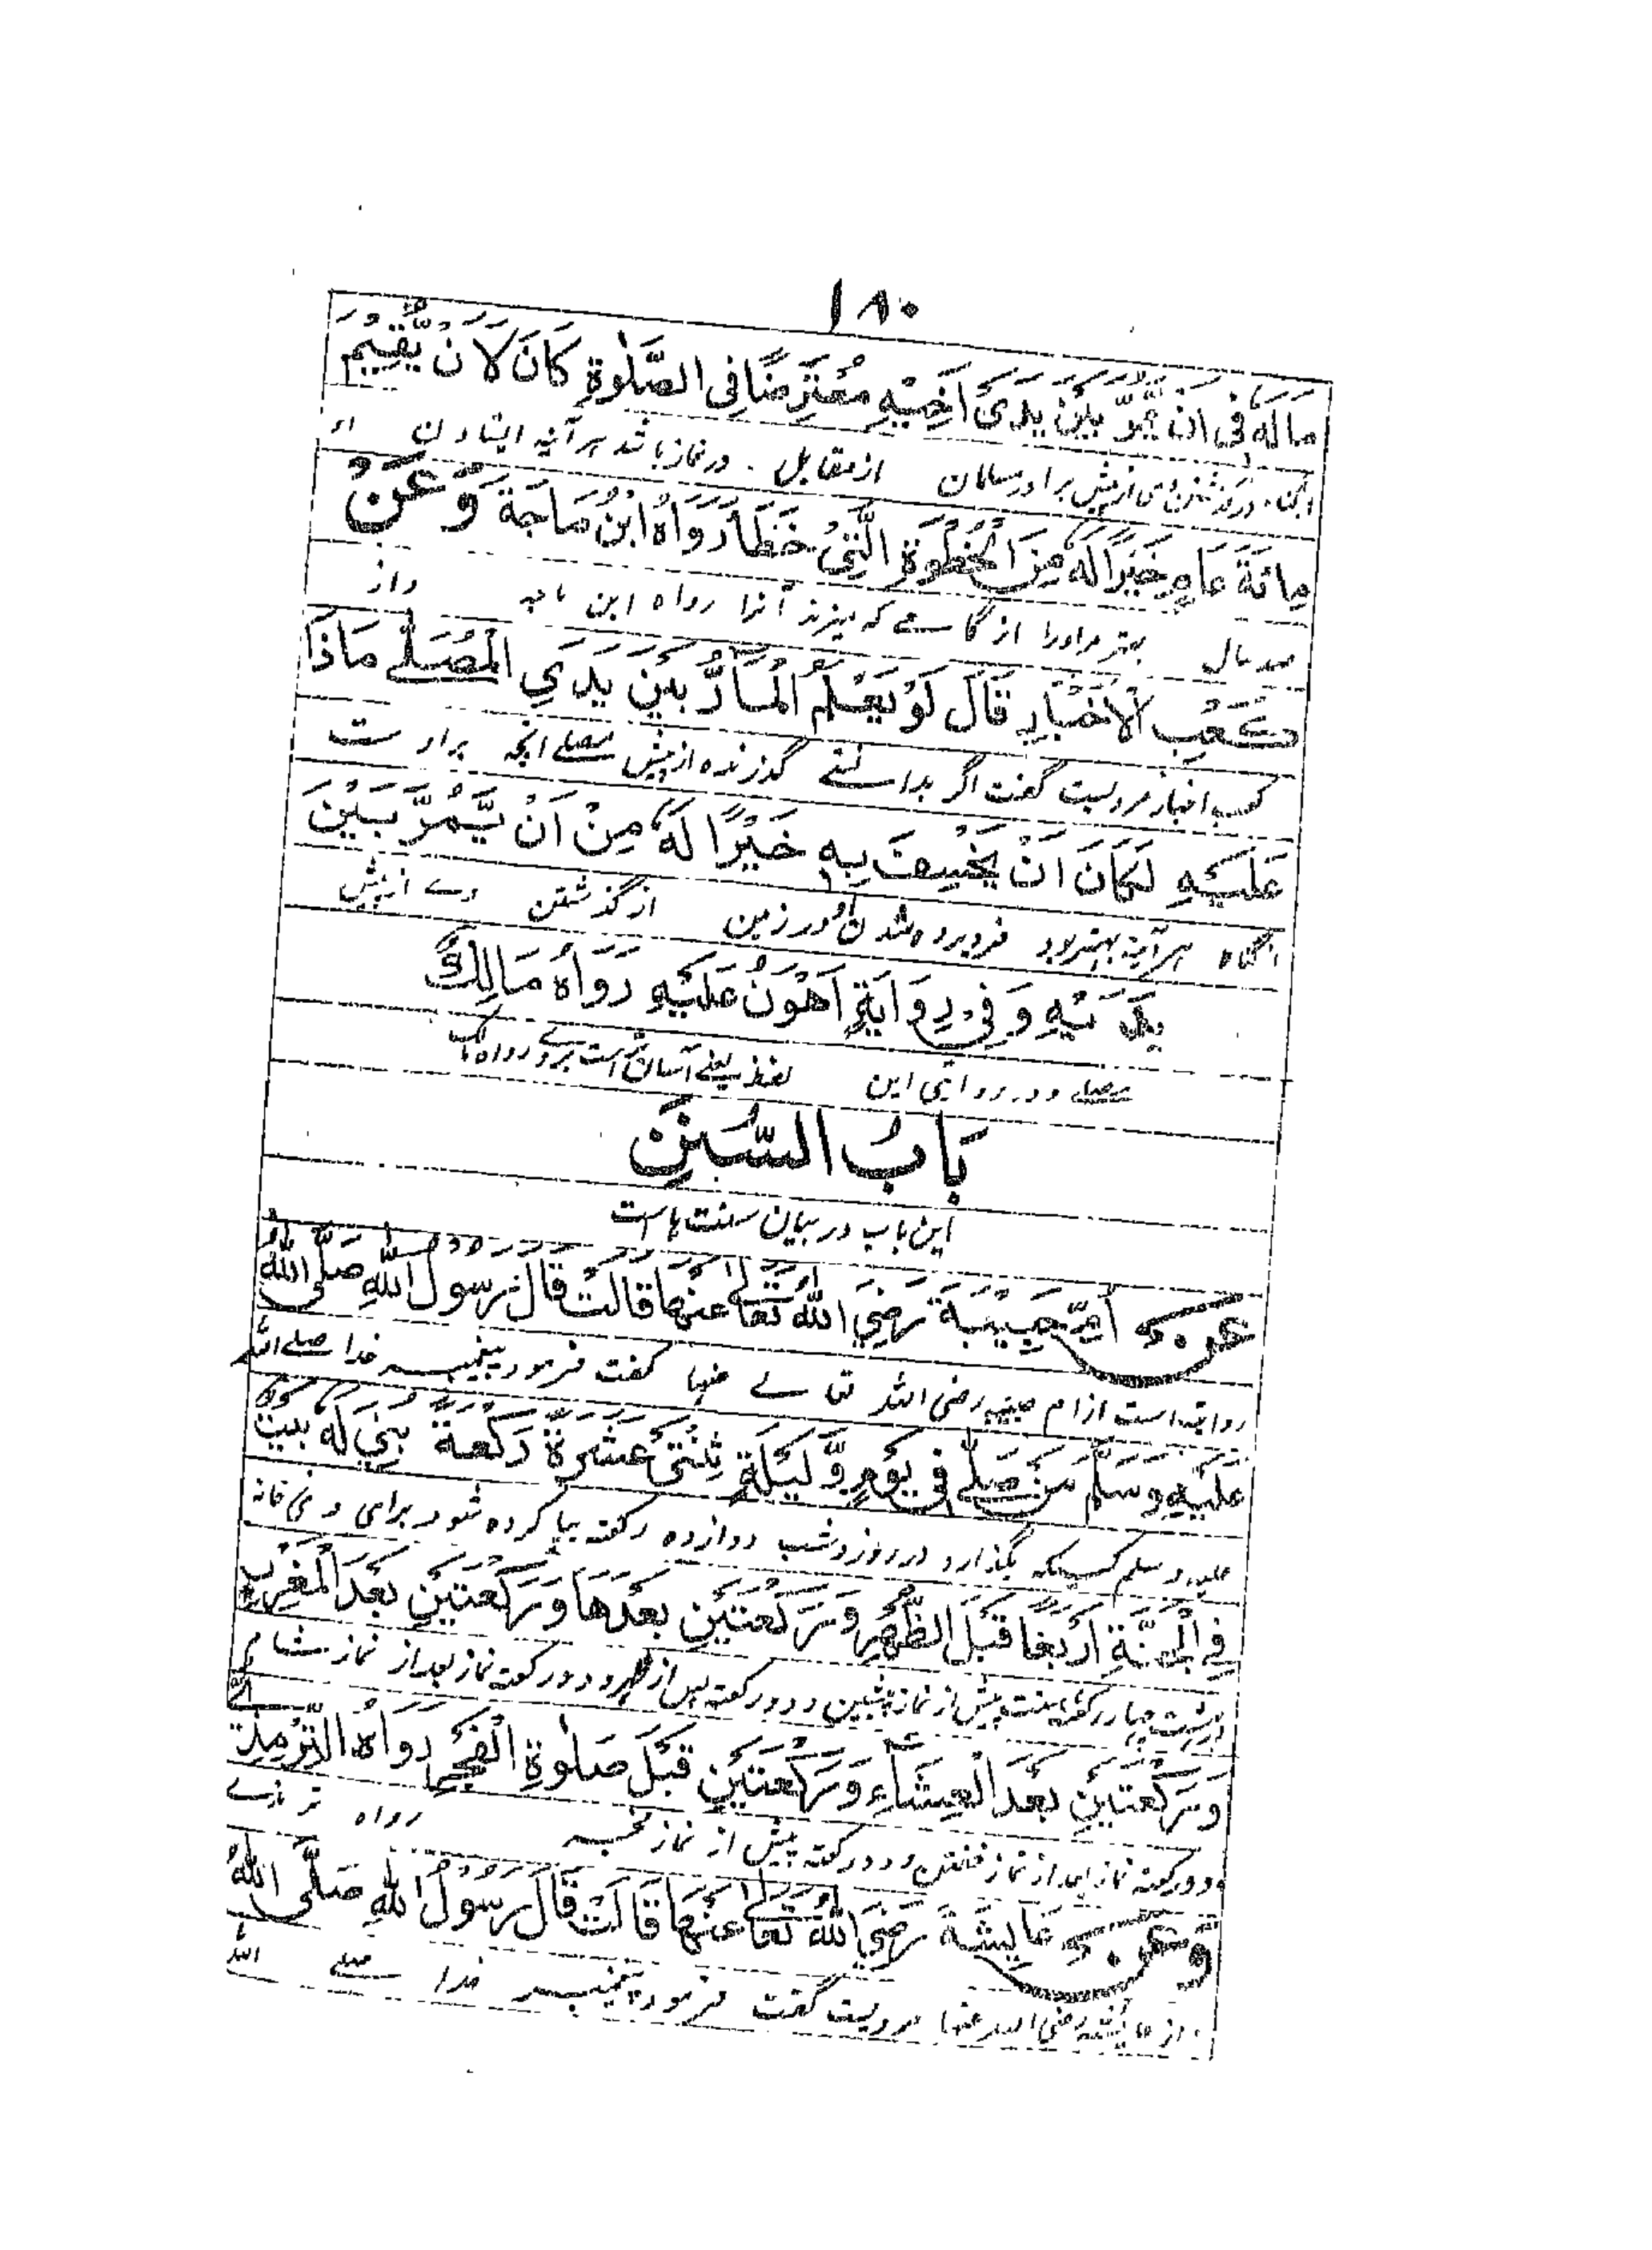 ۱۸۰
مَا لَهُ فِی اَنْ یَّمُرَّ بَیْنَ یَدَیْ اَخِیْهِ مُعْتَرِضًا فِی الصَّلٰوةِ کَانَ لَاَنْ یُّقِیْمَ
از مقابل در نماز باشد هر آئینه ایستادن
مِائَةَ عَامٍ خَیْرًا لَهُ مِنَ الْخُطْوَةِ الَّتِیْ خَطَا رَوَاهُ ابْنُ مَاجَةَ وَعَنْ
صد سال بهتر مر اورا از گامے که میزند آنرا رواه ابن ماجه و از
کَعْبِ الْاَخْبَارِ قَالَ لَوْ یَعْلَمُ الْمَارُّ بَیْنَ یَدَیِ الْمُصَلِّے مَاذَا
کعب اخبار مرویست گفت اگر بدانستے گذرنده از پیش مصلے انچه براوست
عَلَیْهِ لَکَانَ اَنْ یُّخْسَفَ بِهٖ خَیْرًا لَهُ مِنْ اَنْ یَّمُرَّ بَیْنَ
هر آئینه بهتر بود فرو برده شدن او در زمین از گذشتن وے از پیش
یَدَیْهِ وَفِیْ رِوَایَةٍ اَهْوَنُ عَلَیْهِ رَوَاهُ مَالِكٌ
مصلے و در روایتی این لفظ یعنے آسان تر است برو رواه مالک
بَابُ السُّنَنِ
این باب در بیان سنت ها است
عَنْ اُمِّ حَبِیْبَةَ رَضِیَ اللهُ تَعَالٰی عَنْهَا قَالَتْ قَالَ رَسُوْلُ اللهِ صَلَّی اللهُ
روایت است از ام حبیبه رضی الله تعالے عنها گفت فرمود پیغمبر خدا صلے الله
عَلَیْهِ وَسَلَّمَ مَنْ صَلّٰے فِیْ یَوْمٍ وَّلَیْلَةٍ ثِنْتَیْ عَشْرَةَ رَکْعَةً بُنِیَ لَهُ بَیْتٌ
علیه و سلم کسیکه بگذارد در روز و شب دوازده رکعت بنا کرده شود برای وی خانه
فِی الْجَنَّةِ اَرْبَعًا قَبْلَ الظُّهْرِ وَرَکْعَتَیْنِ بَعْدَهَا وَرَکْعَتَیْنِ بَعْدَ الْمَغْرِبِ
چهار رکعت سنت پیش از نماز پیشین و دو رکعت پس از ظهر و دو رکعت نماز بعد از نماز شام
وَرَکْعَتَیْنِ بَعْدَ الْعِشَاءِ وَرَکْعَتَیْنِ قَبْلَ صَلٰوةِ الْفَجْرِ رَوَاهُ التِّرْمِذِیُّ
و دو رکعت نماز بعد از نماز خفتن و دو رکعت پیش از نماز فجر رواه ترمذے
وَعَنْ عَایِشَةَ رَضِیَ اللهُ تَعَالٰی عَنْهَا قَالَتْ قَالَ رَسُوْلُ اللهِ صَلَّی اللهُ
از عایشه رضی الله عنها مرویست گفت فرمود پیغمبر خدا صلے الله